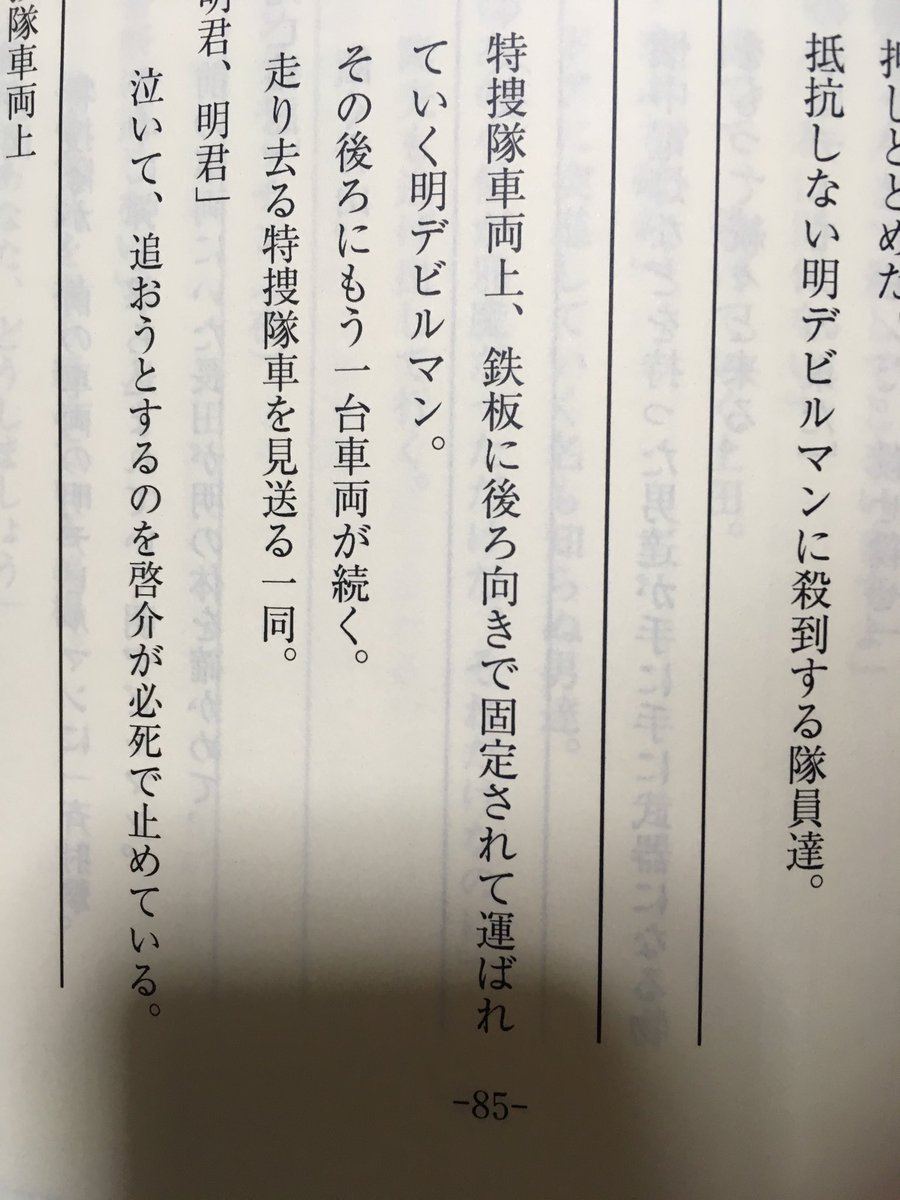 押しとどめた。
抵抗しない明デビルマンに殺到する隊員達。
特捜隊車両上、鉄板に後ろ向きで固定されて運ばれ
ていく明デビルマン。
その後ろにもう一台車両が続く。
走り去る特捜隊車を見送る一同。
明君、明君」
泣いて、追おうとするのを啓介が必死で止めている。
隊車両上
-85-